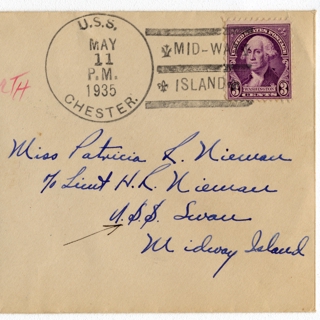 U.S.S.
MAY
11
P.M.
1935
CHESTER.
MID-WA
ISLAND
U.S. POSTAGE
WASHINGTON
3 CENTS 3
TH
Miss Patricia R. Nieman
℅ Lieut H. R. Nieman
U.S.S. Swan
Midway Island